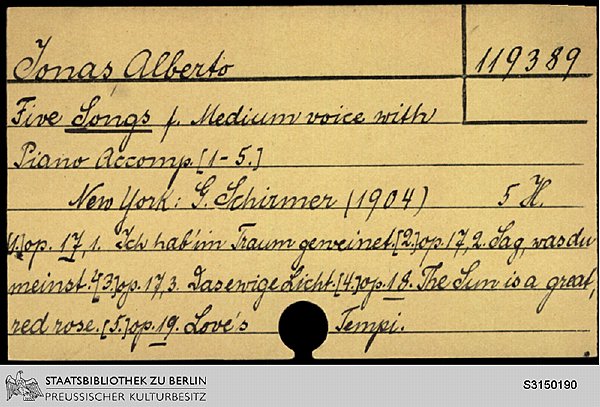 Jonas Alberto
119389
Five Songs f. Medium voice with
Piano Accomp. [1-5.]
New York: G. Schirmer (1904) 5 H.
[1.] op. 17, 1. Ich hab' im Traum geweinet. [2.] op. 17, 2. Sag, was du
meinst. [3.] op. 17, 3. Das ewige Licht. [4.] op. 18. The Sun is a great,
red rose. [5.] op. 19. Love's Tempi.
STAATSBIBLIOTHEK ZU BERLIN
PREUSSISCHER KULTURBESITZ
S3150190